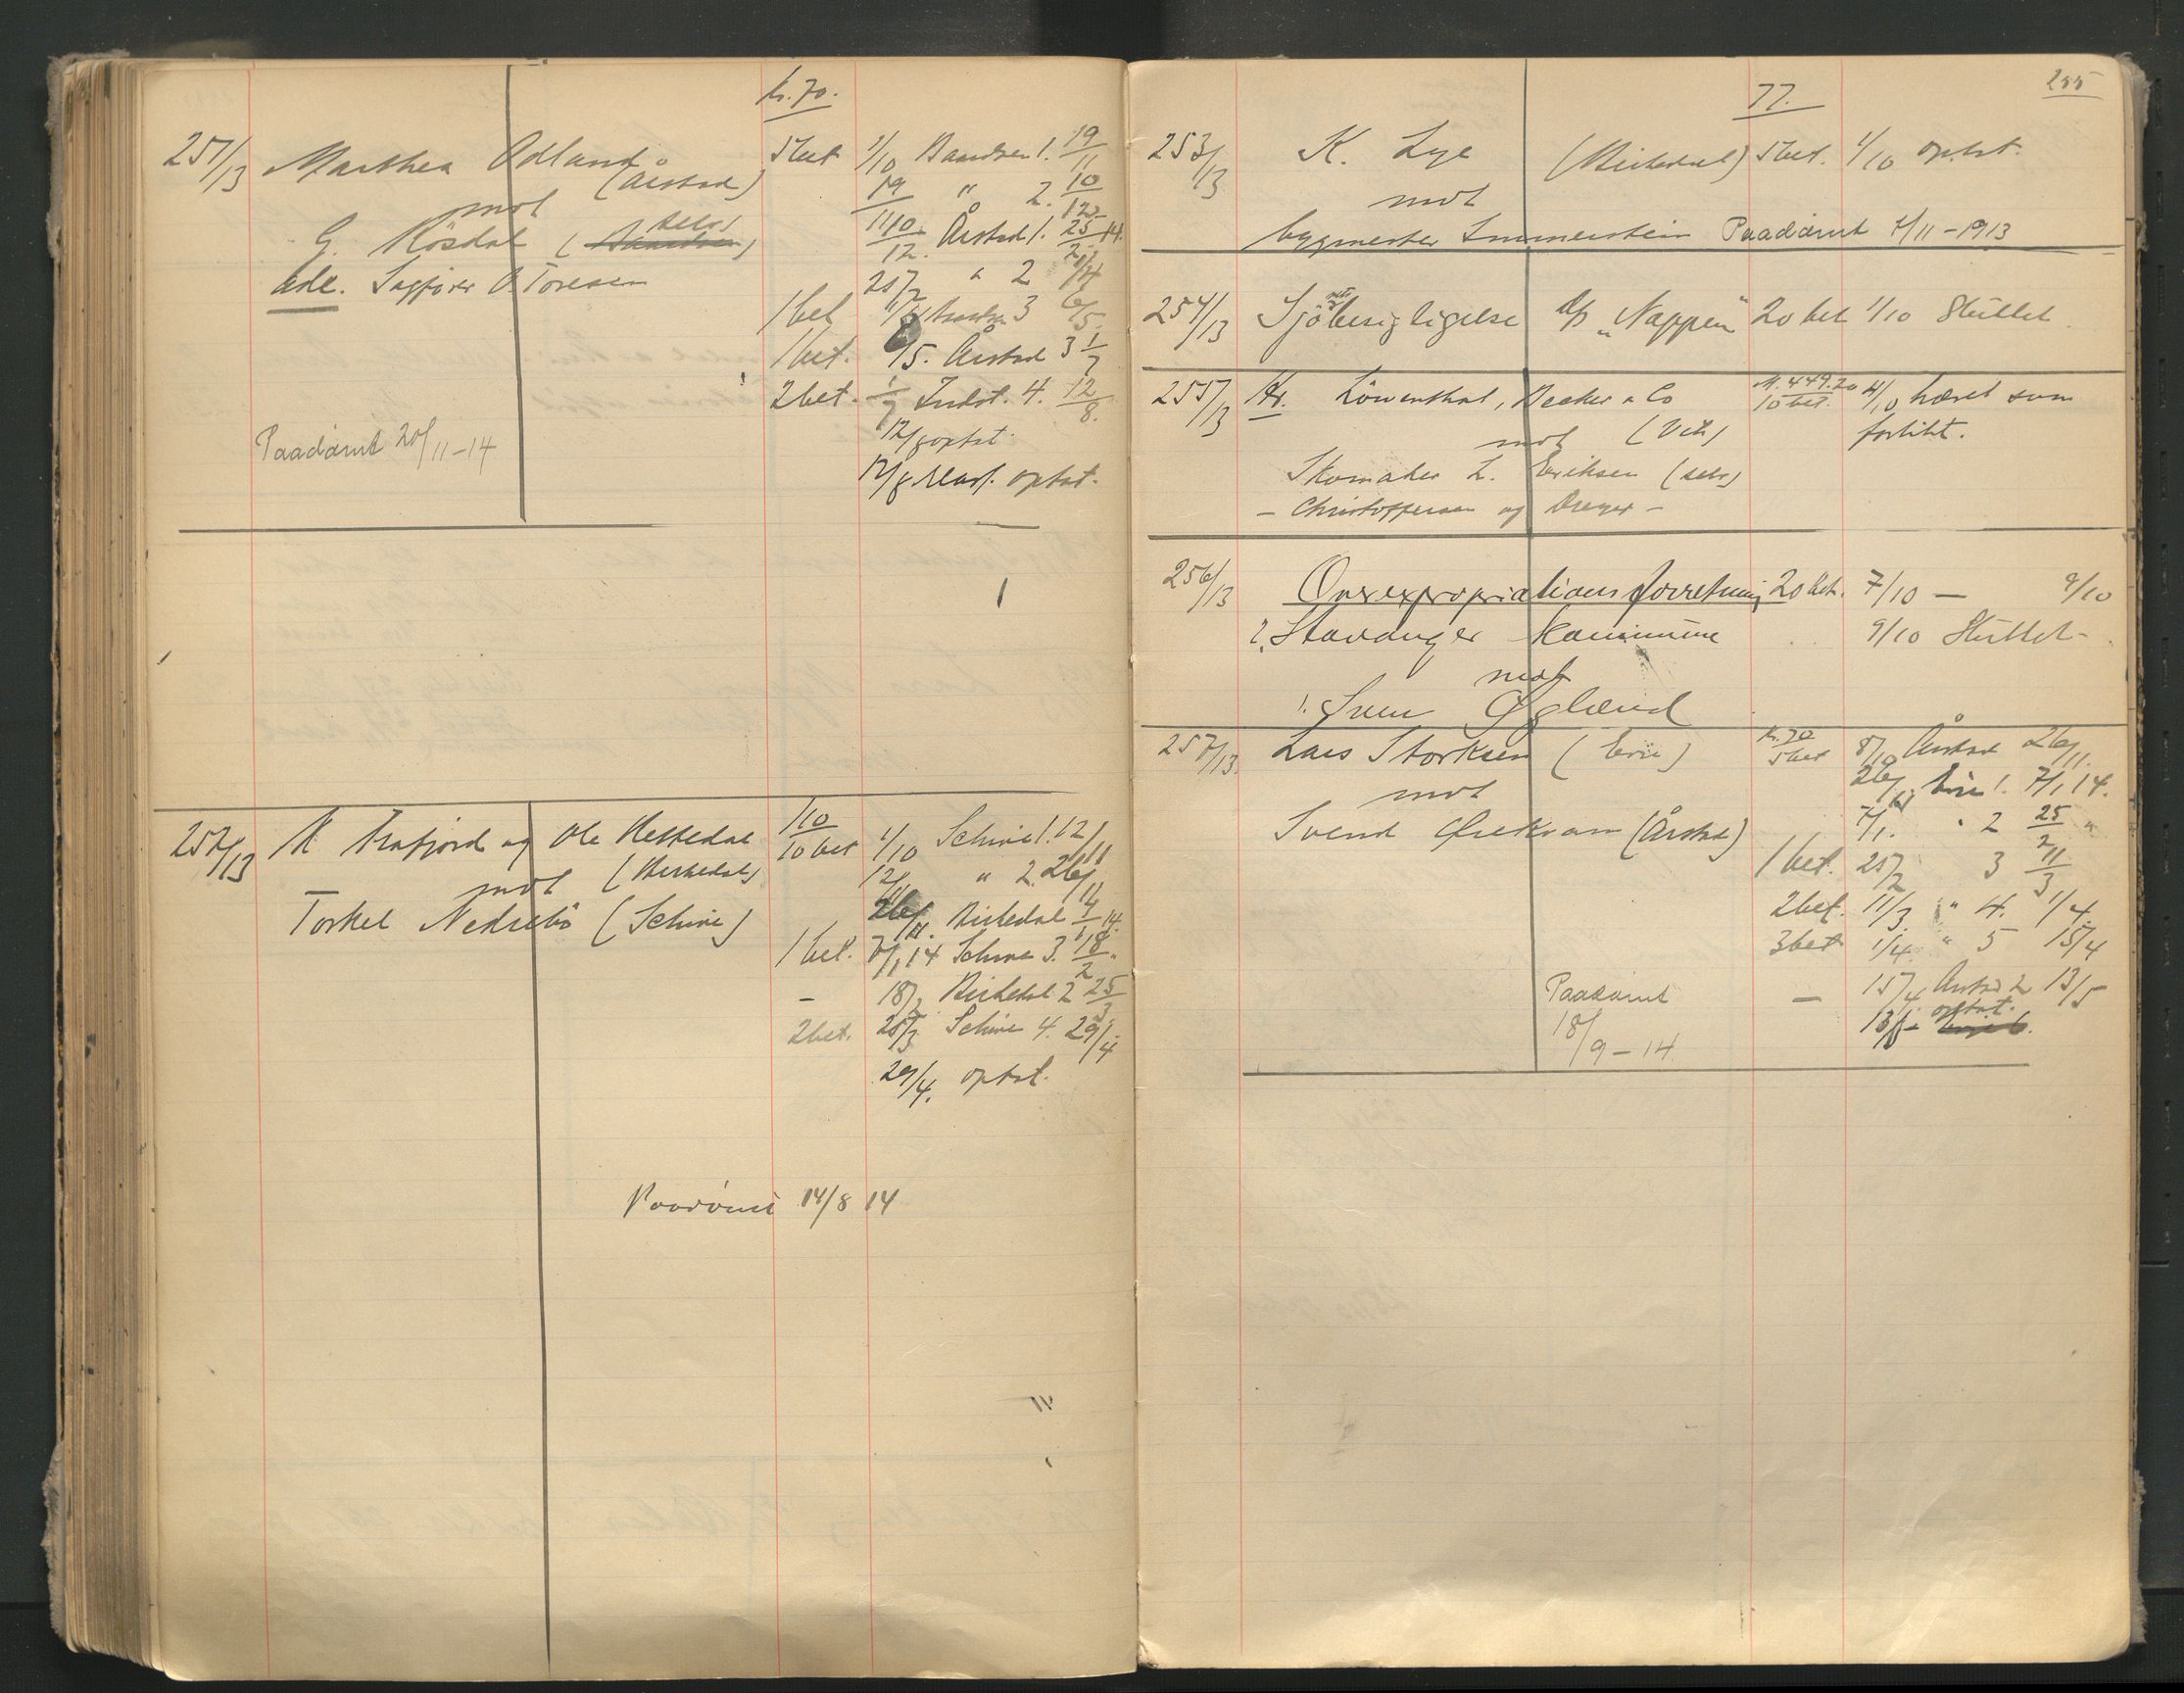 kr. 70.
251/13 Marthea Ödland (Årstad) 5 bet 1/10 Baardsen 1. 19/11
mot 19/11 " 2. 10/12
G. Kösdal (Baardsen) selv 10/12 Årstad 1. 25/2 14.
adv. Sagfører O. Toresen 25/2 " 2 1/4
1 bet 1/4 3 6/5
1 bet. 6/5. Årstad 3 1/7
2 bet. 1/7 Indst. 4. 12/8.
Paadömt 20/11-14
12/8 optat.
12/8 optat.
252/13 Frafjord og Ole Heskedal 110 10 bet 1/10 Schive 1. 12/11
mot (Birkedal) 12/11 " 2. 26/11
Torkel Nedrebö (Schive) 26/11. Birkedal 7/1 14.
1 bet. 7/1 14 Schive 3. 18/2 "
– 18/2 Birkedal 2 25/3
2 bet. 25/3 Schive 4. 29/4
29/4. optat.
Paadömt 14/8 14
255
77.
253/13 K. Lye (Birkedal) 5 bet. 1/10 optat.
mot
bygmester Immerstein Paadömt 7/11-1913
254/13 Sjöbesigtigelse D/S "Nappen" 20 bet 1/10 Sluttet
255/13 Kr. Löwenthal, Becker & Co M. 449.20 10 bet. 4/10 hævet som
mot (Vik) forlikt.
Skomaker L. Eriksen (selv)
– Christoffersen og Dreyer –
256/13 Overexpropriationsforretning 20 bet. 7/10 — 9/10
2. Stavanger Kommune 9/10 Sluttet
mot
1. Sven Øglænd
257/13. Lars Storksen (Erie) kr. 70 5 bet 8/10 Årstad 26/11.
mot 26/11 Erie 1. 7/1 14.
Svend Ørekvam (Årstad) 7/1. " 2 25/2 "
1 bet. 25/2 3 11/3
2 bet. 11/3. " 4. 1/4.
3 bet 1/4. " 5 15/4
Paadömt – 15/4 Årstad 2 13/5
18/9-14 13/5 optat.